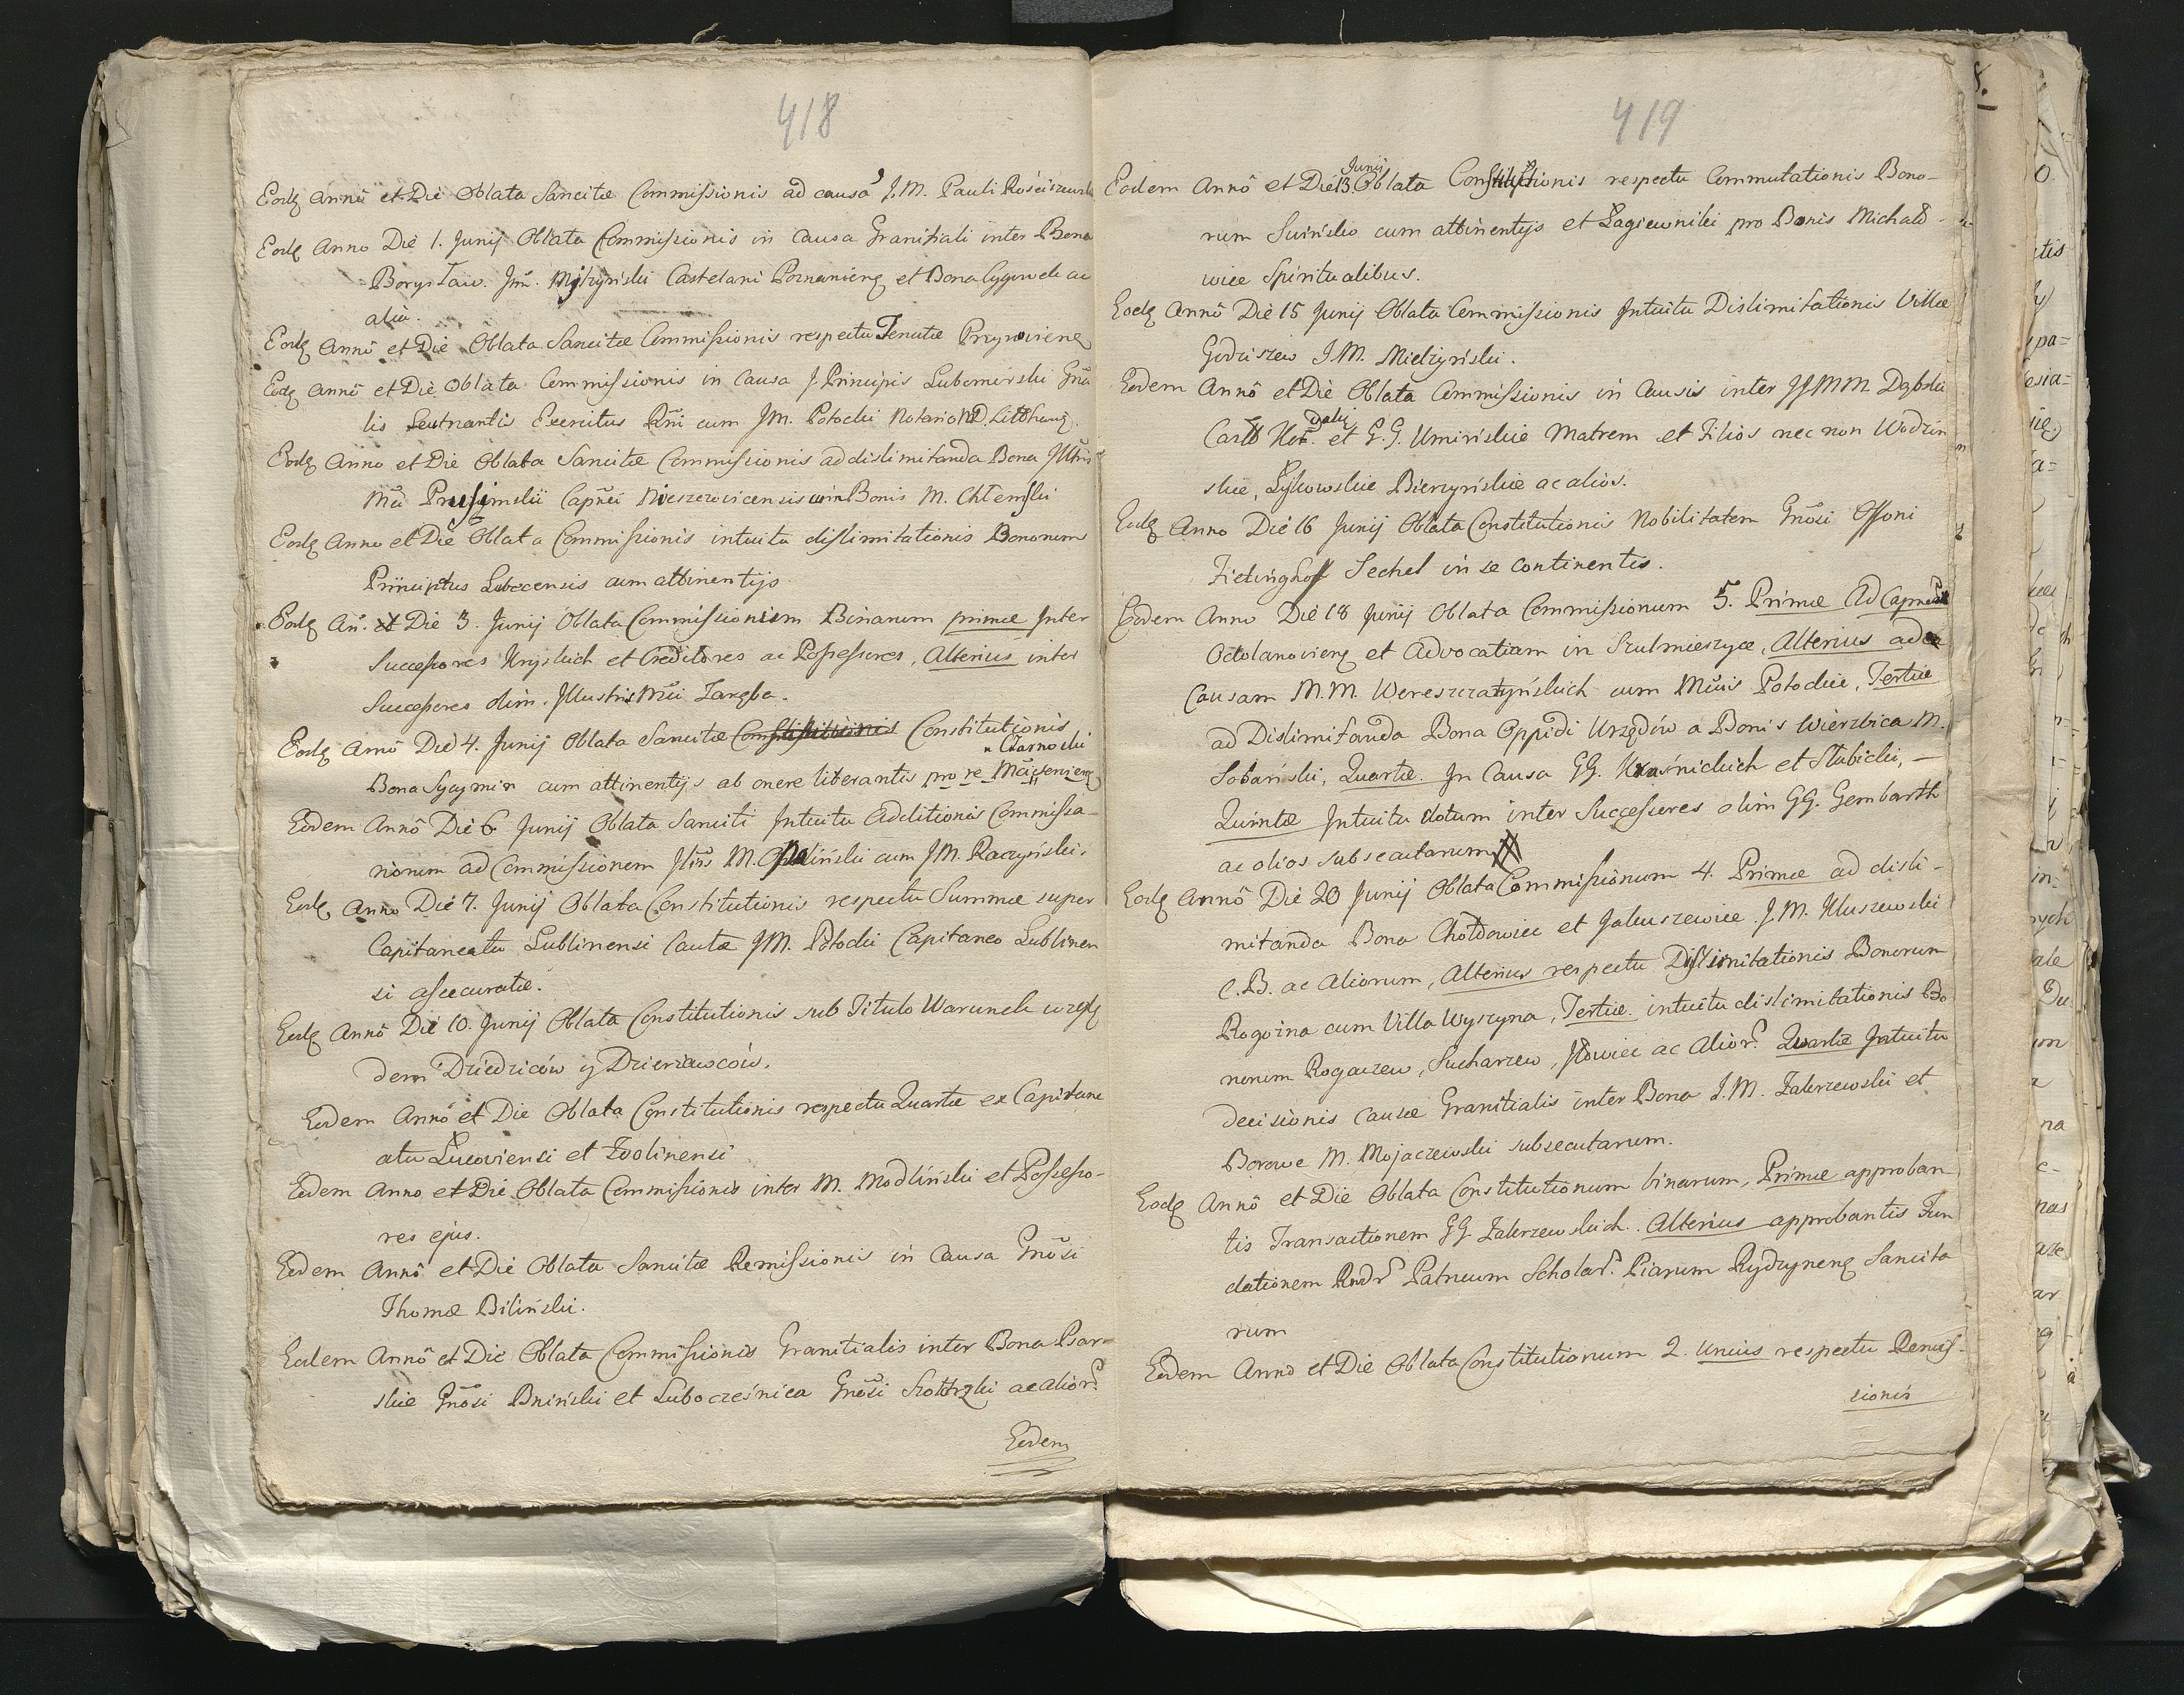 418
Eodꝫ Annô et Die Oblata Sancitæ Commissionis ad causã J.M. Pauli Rościszewski
Eodꝫ Anno Die 1. Junij Oblata Commissionis in Causa Granitiali inter Bona
Borysław. Jm̃. Mijzyński Castelani Poznanienꝫ et Bona Cygow de ac
alia.
Eodꝫ Annô et Die Oblata Sancitæ Commissionis respectu Tenutæ
Eodꝫ Annô et Die Oblata Commissionis in Causa J. Principis Lubomirski Gñа
lis Leutnantis Exercitus Rñi cum JM. Potocki Notario MD. Litthuanꝫ.
Eodꝫ Anno et Die Oblata Sancitæ Commissionis ad dislimitanda Bona Jllũs
Mũ Prusimskii Capñei Nieszewicensis Bonis M. Chlemski
Eodꝫ Anno et Die Oblata Commissionis intuitu dislimitationis Bonorum
Principtus Lubecensis cum attinentijs.
Eodꝫ An̂. et Die 3. Junij Oblata Commissionum Binarum primæ Inter
Successores Kryskich et Creditores ac Possessores, Alterius inter
Successores olim. Jllustris Mũi Zaręba.
Eodꝫ Annô Die 4. Junij Oblata Sancitæ Constitutionis
Czarnocki
Bona Sycymin cum attinentijs ab onere liberantis pro re Mũi
Eodem Annô Die 6 Junij Oblata Sanciti Intuitu Additionis Commissa-
riorum ad Commissionem Jlłris M. Opaliński cum JM. Raczyński.
Eodꝫ Anno Die 7. Junij Oblata Constitutionis respectu Summæ super
Capitaneatu Lublinensi Cautæ JM. Potocki Capitaneo Lublinen
si assecuratæ.
Eodꝫ Annô Die 10. Junij Oblata Constitutionis sub Titulo Warunek wzglę
dem Dziedziców y Dzierzawców.
Eodem Annô et Die Oblata Constitutionis respectu Quartæ ex Capitane
atu Łucoviensi et Zvolinensi
Eodem Anno et Die Oblata Commissionis inter M. Modliński et Possesso-
res ejus.
Eodem Annô et Die Oblata Sancitæ Remissionis in Causa Gnôsi
Thomæ Biliński.
Eodem Annô et Die Oblata Commissionis Granitialis inter Bona Psar-
skie Gnôsi Bniński et Lubocześnica Gnôsi Szołdrzki ac alior̃.
Eodem
419
Junij
Eodem Annô et Die 13. Oblata Constitutionis respectu Commutationis Bono-
rum Swińsko cum attinentijs et Łagiewniki pro Bonis Michało-
wice Spiritualibus.
Eodꝫ Annô Die 15 Junij Oblata Commissionis Intuitu Dislimitationis Villæ
Godziszew J.M. Mielzyński.
Eodem Annô et Die Oblata Commissionis in Causis inter JJMM. Dąbski
et G.G. Umińskie Matrem et Filios nec non Wodzin
skie, Łykowskie Bierzyńskie ac alios.
Eodꝫ Anno Die 16 Junij Oblata Constitutionis Nobilitatem Gnôsi Ossoni
Fietinghoff Sechel in se continentis.
Eodem Anno Die 18 Junij Oblata Commissionum 5. Primæ Ad Capneatũ
Odolanovienꝫ et Advocatiam in Szulmierzyce, Alterius ad
Causam M.M. Wereszczatyńskich cum Mũis Potockie, Tertiæ
ad Dislimitanda Bona Oppidi Urzędów a Bonis Wierzbica M.
Sobański, Quartæ. In Causa GG. Kraśnickich et Słabicki, —
Quintæ Intuitu dotum inter Successores olim GG. Gembarth
ac alios subsecutarum
Eodꝫ Annô Die 20 Junij Oblata Commissionum 4. Primæ ad disli-
mitanda Bona Chołdowiec et Jaluszewice J.M. Kluszewski
C.B. ac Aliorum, Alterius respectu Dislimitationis Bonorum
Rogoźna cum Villa Wyszyna, Tertiæ. intuitu dislimitationis Bo
norum Rogaczew, Sucharzew, Jłowiec ac Alior̃. Quartæ Intuitu
decisionis causæ Granitialis inter Bona J.M. Zakrzewski et
Borowe M. Mojaczewski subsecutarum.
Eodꝫ Annô et Die Oblata Constitutionum binarum, Primæ approban
tis Transactionem GG Zakrzewskich. Alterius approbantis Fun
dationem Rndr̃ Patrum Scholar̃. Piarum Rydzynenꝫ Sancita
rum
Eodem Anno et Die Oblata Constitutionum 2. Unius respectu Remis-
sionis